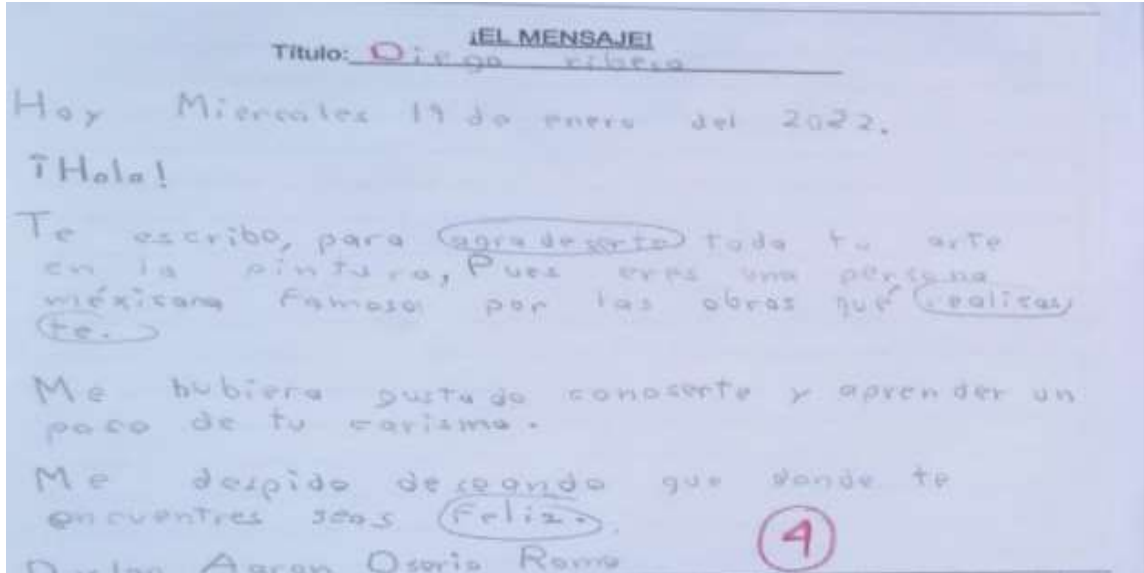 ¡EL MENSAJE!
Título: Diego ribera
Hoy Miercoles 19 de enero del 2022.
¡Hola!
Te escribo, para agradeserte toda tu arte
en la pintura, Pues eres una persona
méxicana famosa por las obras qué realisas
te.
Me hubiera gustado conoserte y aprender un
poco de tu carisma.
Me despido deseando que donde te
encuentres seas feliz.
4
Aaron Osorio Romo